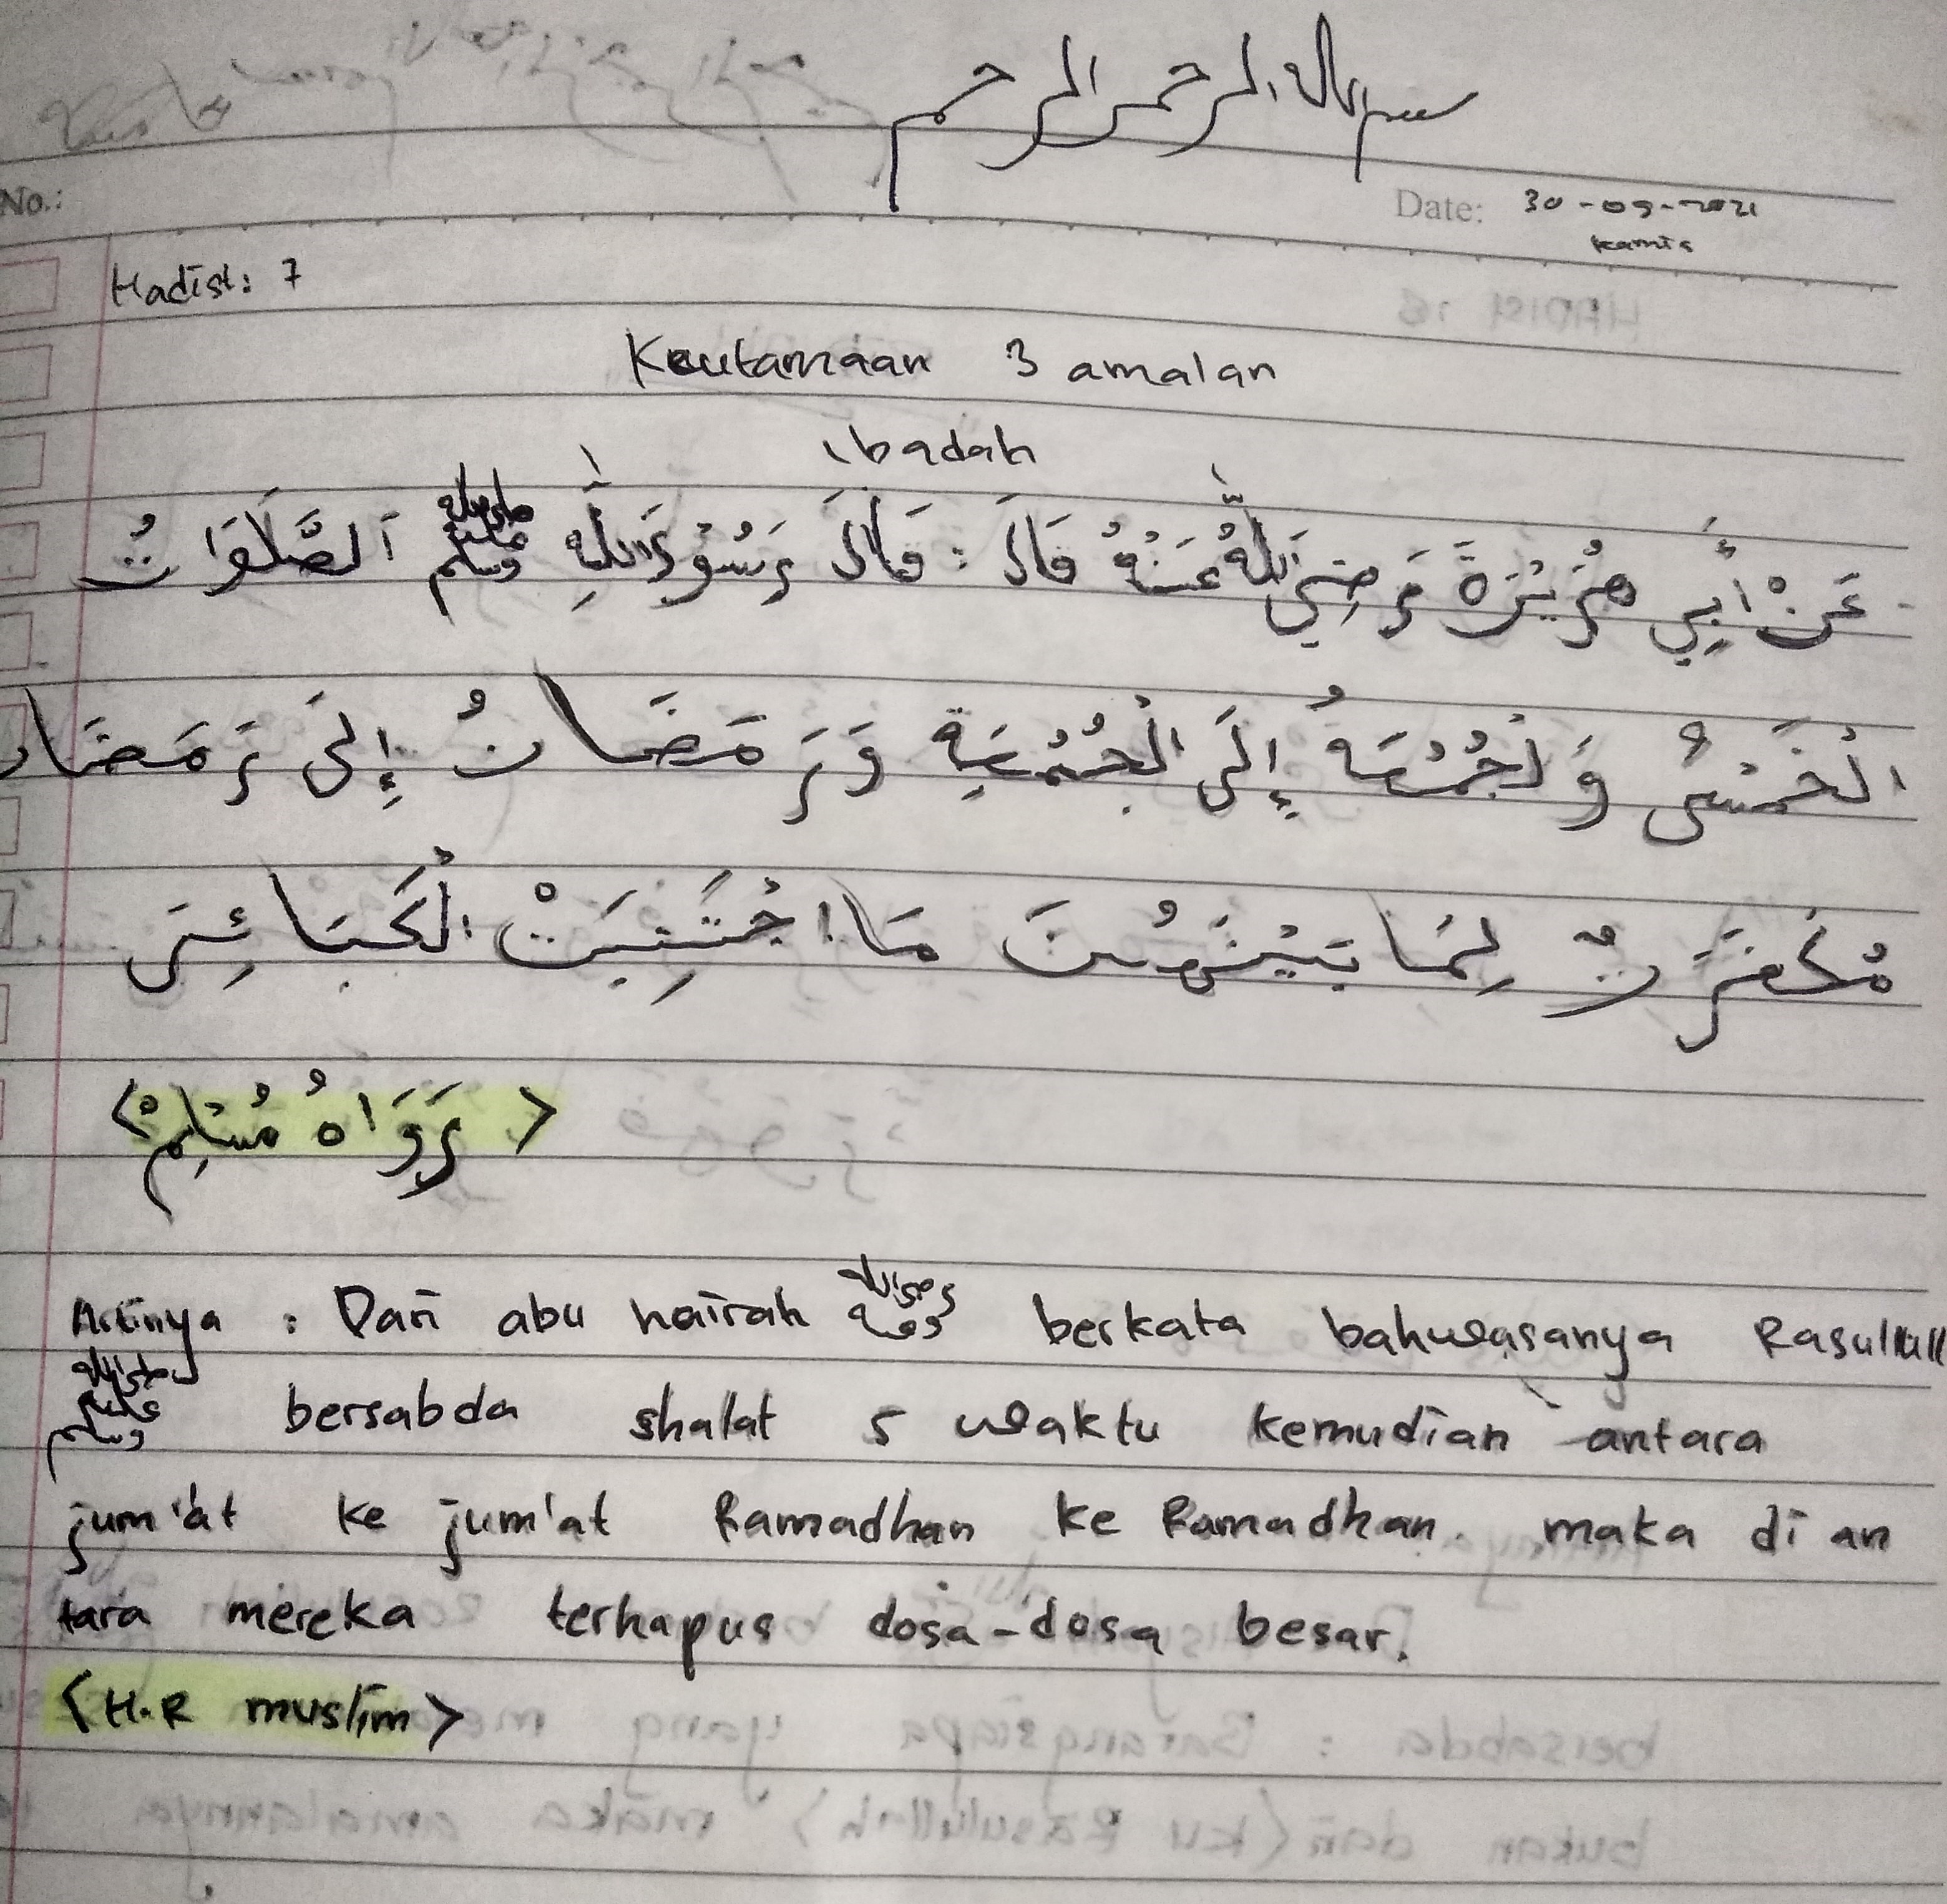 بسم الله الرحمن الرحيم
No.:
Date: 30-09-2021
Kamis
Hadist: 7
Keutamaan 3 amalan
ibadah
عَنْ أَبِي هُرَيْرَةَ رَضِيَ اللَّهُ عَنْهُ قَالَ : قَالَ رَسُوْلُ اللَّهِ صلى الله عليه وسلم اَلصَّلَوَاتُ
الْخَمْسُ وَلْجُمْعَةُ إِلَى الْجُمُعَةِ وَرَمَضَانُ إِلَى رَمَضَان
مُكَفِّرَتٌ لِمَا بَيْنَهُنَ مَا اجْتَنِبَتْ الْكَبَائِرَ
< رَوَاهُ مُسْلِمْ >
Artinya : Dari abu hairah رضي الله عنه berkata bahwasanya Rasulull
صلى الله عليه وسلم bersabda shalat 5 waktu kemudian antara
jum'at ke jum'at Ramadhan ke Ramadhan. maka di an
tara mereka terhapus dosa-dosa besar.
<H.R muslim>